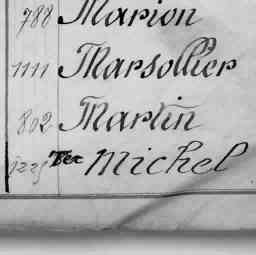 788 Marion
1111 Marsollier
802 Martin
Michel